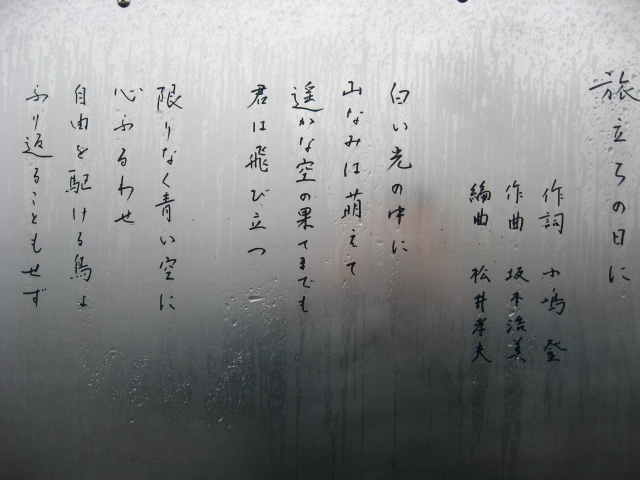 旅立ちの日に
作詞 小嶋登
作曲 坂本浩美
編曲 松井孝夫
白い光の中に
山なみは萌えて
遥かな空の果てまでも
君は飛び立つ
限りなく青い空に
心ふるわせ
自由を駆ける鳥よ
ふり返ることもせず